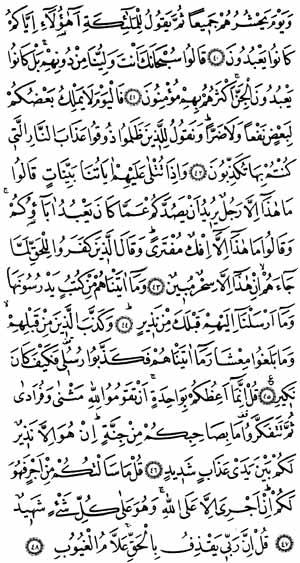 وَيَوْمَ يَحْشُرُهُمْ جَمِيعًا ثُمَّ يَقُولُ لِلْمَلٰٓئِكَةِ اَهٰٓؤُ۬لَٓاءِ اِيَّاكُمْ
كَانُوا يَعْبُدُونَ ﴿٤٠﴾ قَالُوا سُبْحَانَكَ اَنْتَ وَلِيُّنَا مِنْ دُونِهِمْۚ بَلْ كَانُوا
يَعْبُدُونَ الْجِنَّۚ اَكْثَرُهُمْ بِهِمْ مُؤْمِنُونَ ﴿٤١﴾ فَالْيَوْمَ لَا يَمْلِكُ بَعْضُكُمْ
لِبَعْضٍ نَفْعًا وَلَا ضَرًّاۜ وَنَقُولُ لِلَّذِينَ ظَلَمُوا ذُوقُوا عَذَابَ النَّارِ الَّتِي
كُنْتُمْ بِهَا تُكَذِّبُونَ ﴿٤٢﴾ وَاِذَا تُتْلٰى عَلَيْهِمْ اٰيَاتُنَا بَيِّنَاتٍ قَالُوا
مَا هٰذَٓا اِلَّا رَجُلٌ يُرِيدُ اَنْ يَصُدَّكُمْ عَمَّا كَانَ يَعْبُدُ اٰبَٓاؤُ۬كُمْۚ
وَقَالُوا مَا هٰذَٓا اِلَّٓا اِفْكٌ مُفْتَرًىۜ وَقَالَ الَّذِينَ كَفَرُوا لِلْحَقِّ لَمَّا
جَٓاءَهُمْۙ اِنْ هٰذَٓا اِلَّا سِحْرٌ مُبِينٌ ﴿٤٣﴾ وَمَٓا اٰتَيْنَاهُمْ مِنْ كُتُبٍ يَدْرُسُونَهَا
وَمَٓا اَرْسَلْنَٓا اِلَيْهِمْ قَبْلَكَ مِنْ نَذِيرٍۜ ﴿٤٤﴾ وَكَذَّبَ الَّذِينَ مِنْ قَبْلِهِمْۙ
وَمَا بَلَغُوا مِعْشَارَ مَٓا اٰتَيْنَاهُمْ فَكَذَّبُوا رُسُلِي۠ فَكَيْفَ كَانَ
نَكِيرِ۟ ﴿٤٥﴾ قُلْ اِنَّمَٓا اَعِظُكُمْ بِوَاحِدَةٍۚ اَنْ تَقُومُوا لِلّٰهِ مَثْنٰى وَفُرَادٰى
ثُمَّ تَتَفَكَّرُوا۠ مَا بِصَاحِبِكُمْ مِنْ جِنَّةٍۜ اِنْ هُوَ اِلَّا نَذِيرٌ
لَكُمْ بَيْنَ يَدَيْ عَذَابٍ شَدِيدٍ ﴿٤٦﴾ قُلْ مَا سَاَلْتُكُمْ مِنْ اَجْرٍ فَهُوَ
لَكُمْۜ اِنْ اَجْرِيَ اِلَّا عَلَى اللّٰهِۚ وَهُوَ عَلٰى كُلِّ شَيْءٍ شَهِيدٌ
﴿٤٧﴾ قُلْ اِنَّ رَبِّي يَقْذِفُ بِالْحَقِّۚ عَلَّامُ الْغُيُوبِ ﴿٤٨﴾